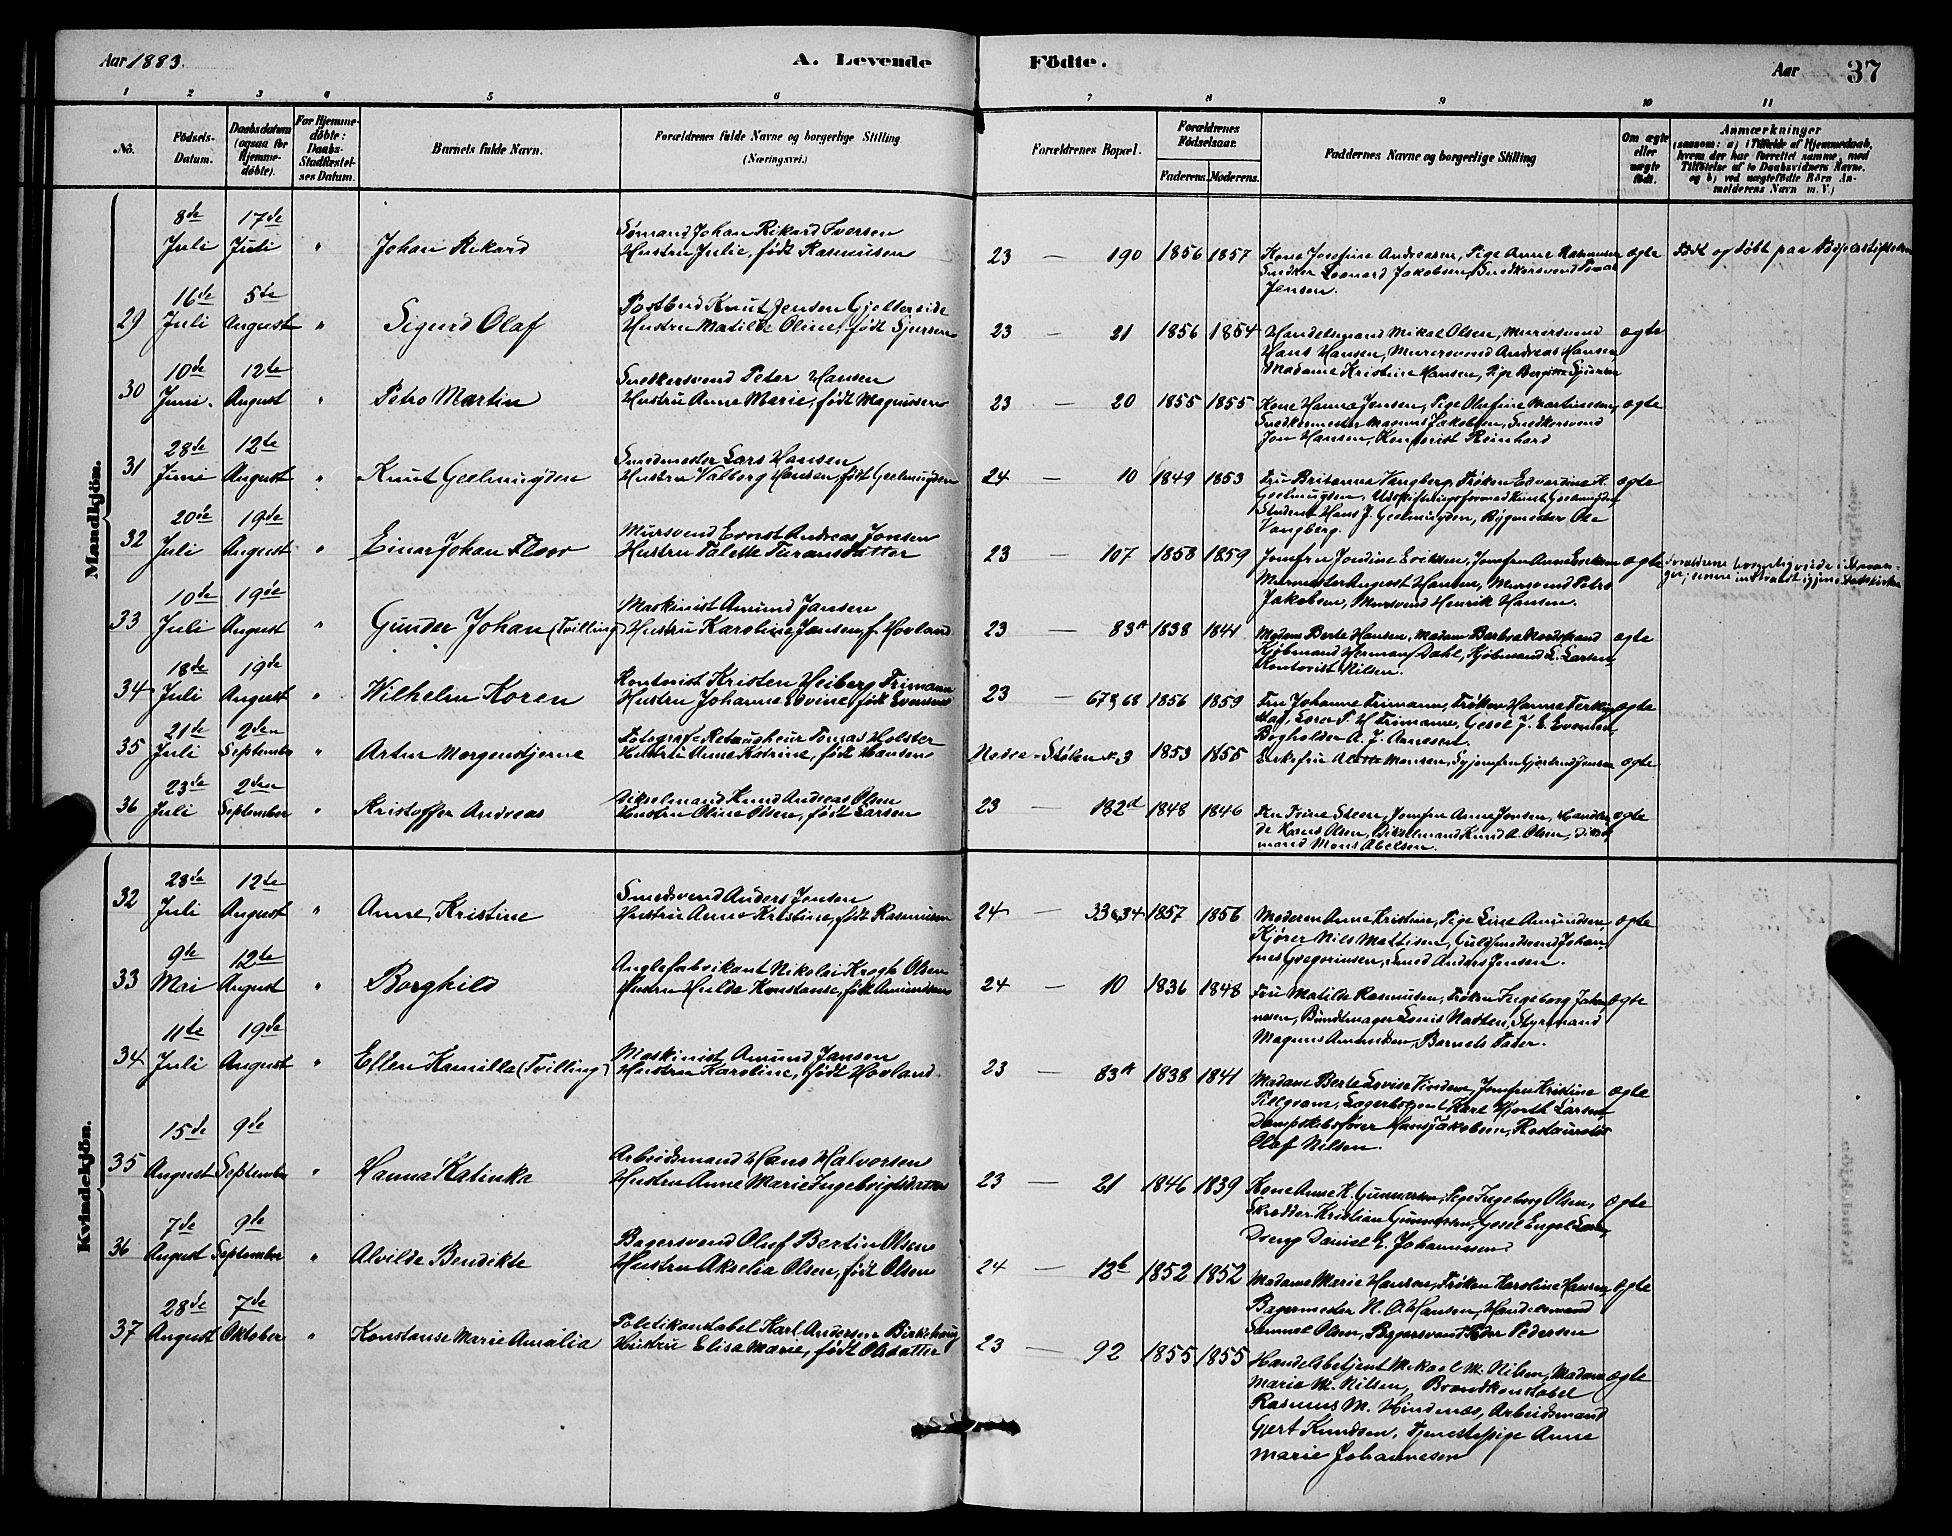 Aar 1883. A. Levende Fødte. Aar 37
1 2 3 4 5 6 7 8 9 10 11
No. Födsels-Datum. Daabsdatum (ogsaa for Hjemme-døbte). For Hjemme-døbte: Daabs-Stadfæstel-ses Datum. Barnets fulde Navn. Forældrenes fulde Navne og borgerlige Stilling (Næringsvei.) Forældrenes Bopæl. Forældrenes Födselsaar. Faderens. Moderens. Faddernes Navne og borgerlige Stilling Om ægte eller uægte født. Anmærkninger (saasom: a) i Tilfælde af Hjemmedaab, hvem der har forrettet samme, med Tilföielse af to Daabsvidners Navne, og b) ved uægtefödte Börn Anmelderens Navn m. V.)
Mandkjön.
8de Juli 17de Juli " Johan Rikard Sømand Johan Rikard Iversen
Hustru Julie, født Rasmusen 23 — 190 1856 1857 Kone Josefine Andreasen, Pige Anne Rasmusen
Snedker Leonard Jakobsen, Snedkersvend Tomas
Jensen. ægte Født og døbt paa
29 16de Juli 5te August " Sigurd Olaf Postbud Knut Jensen Gjellerside
Hustru Matilde Oline, født Sjursen 23 — 21 1856 1854 Handelsmand Mikal Olsen, Murersvend
Hans Hansen, Murersvend Andreas Hansen,
Madame Kristine Hansen, Pige Bergitte Sjursen ægte
30 10de Juni. 12te August " Petro Martin Snedkersvend Peter Hansen
Hustru Anne Marie, født Magnussen 23 — 20 1855 1855 Kone Hanna Jensen, Pige Olufine Martinsen,
Snedkermester Magnus Jakobsen, Snedkersvend
Jon Hansen, Kontorist Reinhard ægte
31 28de Juni 12te August " Knut Geelmuyden Smedmester Lars Hansen
Hustru Valborg Hansen, født Geelmuyden 24 — 10 1849 1853 Fru Britanna Vangberg, Frøken Edvardine H.
Geelmuyden, Udskiftningsformand Knut Geelmuyden,
Student Hans J. Geelmuyden, Bygmester Ole
Vangberg. ægte
32 20de Juli 19de August " Einar Johan Floor Mursvend Ernst Andreas Jonsen
Hustru Talette Turansdatter 23 — 107 1858 1859 Jomfru Jondine Eriksen, Jomfru Anne Eriksen
Murmester August Hansen, Mursvend Peter
Jakobsen, Mursvend Henrik Hansen. ægte Forældrene borgerlig viede i Stavanger, senere indtraadt igjen i Statskirken
33 10de Juli 19de August " Gunder Johan (Tvilling) Maskinist Amund Jansen
Hustru Karoline Jansen, f. Hovland 23 — 83a 1838 1841 Madam Berte Hansen, Madam Barbra Nordstrand
Kjøbmand Herman Dahl, Kjøbmand L. Larsen,
Kontorist Nilsen. ægte
34 18de Juli 19de August " Wilhelm Koren Kontorist Kristen Heiberg Frimann
Hustru Johanne Edvine, født Evensen 23 — 67 & 68 1856 1859 Fru Johanne Frimann, Frøken Hanna
P. H Frimann, Gesel J. E Evensen,
Bogholder A. J. Arnesen. ægte
35 21de Juli 2den September " Artur Morgenstjerne Fotograf-Retoucheur Tomas Holster
Hustru Anne Katrine, født Hansen Nedre Stølen No 3 1853 1855 Enkefru Alette Monsen, Syjomfru Gjertrud Jensen ægte
36 23de Juli 2den September " Kristoffer Andreas Dikselmand Knud Andreas Olsen
Hustru Oline Olsen, født Larsen 23 — 182d 1848 1846 Fru Trine Steen, Jomfru Anne Jonsen, Handlende
Hans Olsen, Dikselmand Knud A. Olsen, Diksel-
mand Mons Abelsen. ægte
Kvindekjön.
32 23de Juli 12te August " Anne Kristine Smedsvend Anders Jensen
Hustru Anne Kristine, født Rasmusen 24 — 33 & 34 1857 1856 Moderen Anne Kristine, Pige Line Amundsen,
Kjører Nils Mattisen, Guldsmedsvend Johan-
nes Gregoriusen, Smed Anders Jensen. ægte
33 9de Mai 12te August " Borghild Anglefabrikant Nikolai Krogh Olsen
Hustru Hulda Konstanse, født Amundsen 24 — 10 1836 1848 Fru Matilde Rasmusen, Frøken Ingeborg Johan-
nesen, Bundtmager Louis Natten, Styrmand
Magnus Amundsen, Barnets Fader. ægte
34 11te Juli 19de August " Ellen Kamilla (Tvilling) Maskinist Amund Jansen
Hustru Karoline, født Hovland 23 — 83a 1838 1841 Madame Berte Lovise Vindenes, Jomfru Kristine
Pillgram, Lagerbetjent Karl Hjorth Larsen,
Dampskibsfører Hans Jakobsen, Restauratør
Olaf Nilsen. ægte
35 15de August 9de September " Hanna Katinka Arbeidsmand Hans Halvorsen
Hustru Anne Marie Ingebrigtsdatter 23 — 21 1846 1839 Kone Anne K. Gunnarsen, Pige Ingeborg Olsen,
Skrædder Kristian Gunnarsen, Gesel Engel Larsen,
Dreng Daniel E. Johannesen ægte
36 7de August 9de September " Alvilde Bendikte Bagersvend Oluf Bertin Olsen
Hustru Akselia Olsen, født Olsen 24 — 12b 1852 1852 Madame Marie Hansen, Frøken Karoline Hansen
Bagermester N. O. Hansen, Handelsmand
Samuel Olsen, Bagersvend Peder Pedersen ægte
37 28de August 7de Oktober " Konstanse Marie Amalia Politikonstabel Karl Andersen Birkehaug
Hustru Elisa Marie, født Olsdatter 23 — 92 1855 1855 Handelsbetjent Mikael M. Nilsen, Madam
Marie M. Nilsen, Brandkonstabel
Rasmus M. Hindenæs, Arbeidsmand
Gjert Knudsen, Tjenestepige Anne
Marie Johannesen ægte